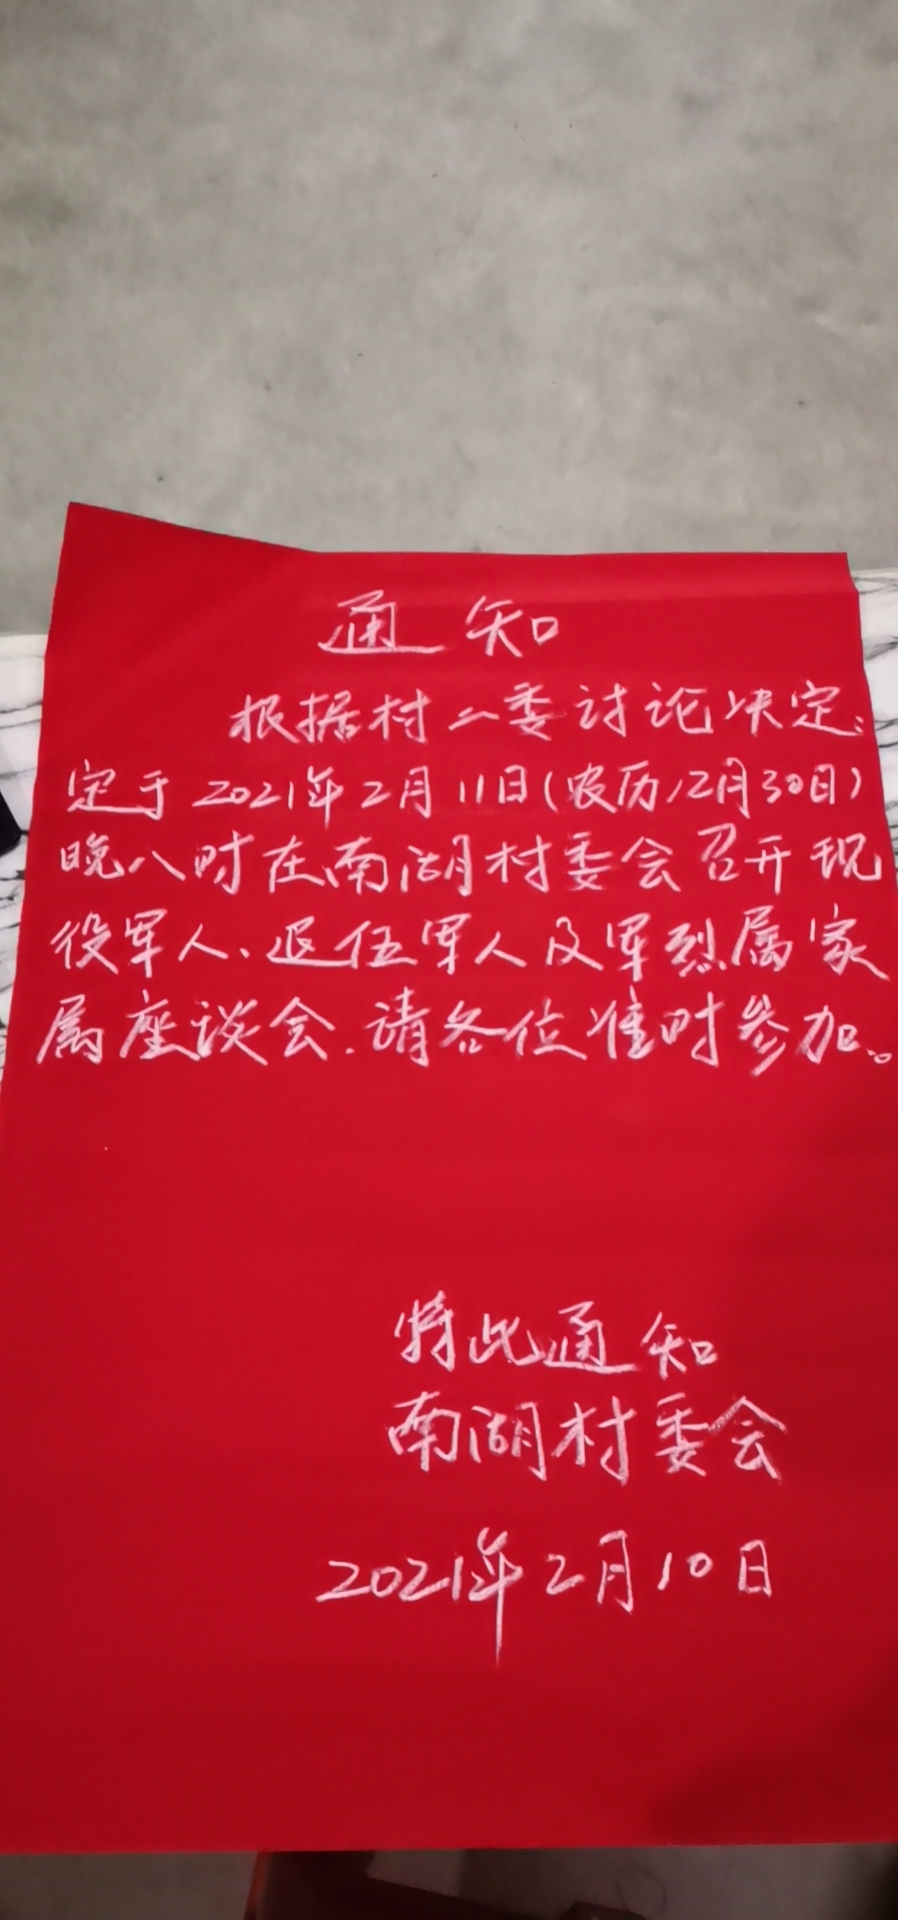 通知
根据村二委讨论决定:
定于2021年2月11日(农历12月30日)
晚八时在南湖村委会召开现
役军人、退伍军人及军烈属家
属座谈会.请各位准时参加。
特此通知
南湖村委会
2021年2月10日